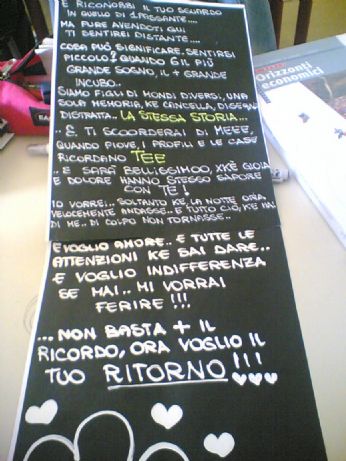 E RICONOBBI IL TUO SGUARDO
IN QUELLO DI 1 PASSANTE....
MA PURE AVENDOTI QUI
TI SENTIREI DISTANTE....
COSA PUÒ SIGNIFICARE SENTIRSI
PICCOLO! QUANDO 6 IL PIÙ
GRANDE SOGNO, IL + GRANDE
INCUBO..
SIAMO FIGLI DI MONDI DIVERSI, UNA
SOLA MEMORIA, KE CANCELLA, DISEGNA
DISTRATTA.. LA STESSA STORIA...
..E TI SCORDERAI DI MEEE,
QUANDO PIOVE, I PROFILI E LE CASE
RICORDANO TEE
.. E SARÀ BELLISSIMOO, XKÈ GIOIA
E DOLORE HANNO STESSO SAPORE
CON TE!
IO VORREI.. SOLTANTO KE LA NOTTE ORA,
VELOCEMENTE ANDASSE.. E TUTTO CIÒ, KE HAI
DI ME.. DI COLPO NON TORNASSE..
E VOGLIO AMORE.. E TUTTE LE
ATTENZIONI KE SAI DARE..
E VOGLIO INDIFFERENZA
SE HAI.. MI VORRAI
FERIRE!!!
...NON BASTA + IL
RICORDO, ORA VOGLIO IL
TUO RITORNO!!!
Orizzonti
economici